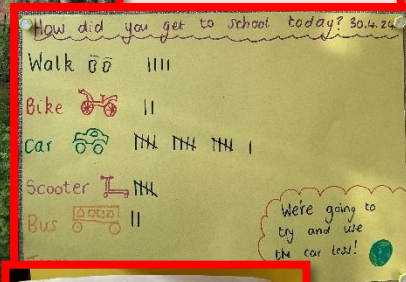 How did you get to school today? 30.4.24
Walk
Bike
Car
Scooter
Bus
We're going to
try and use
the car less!